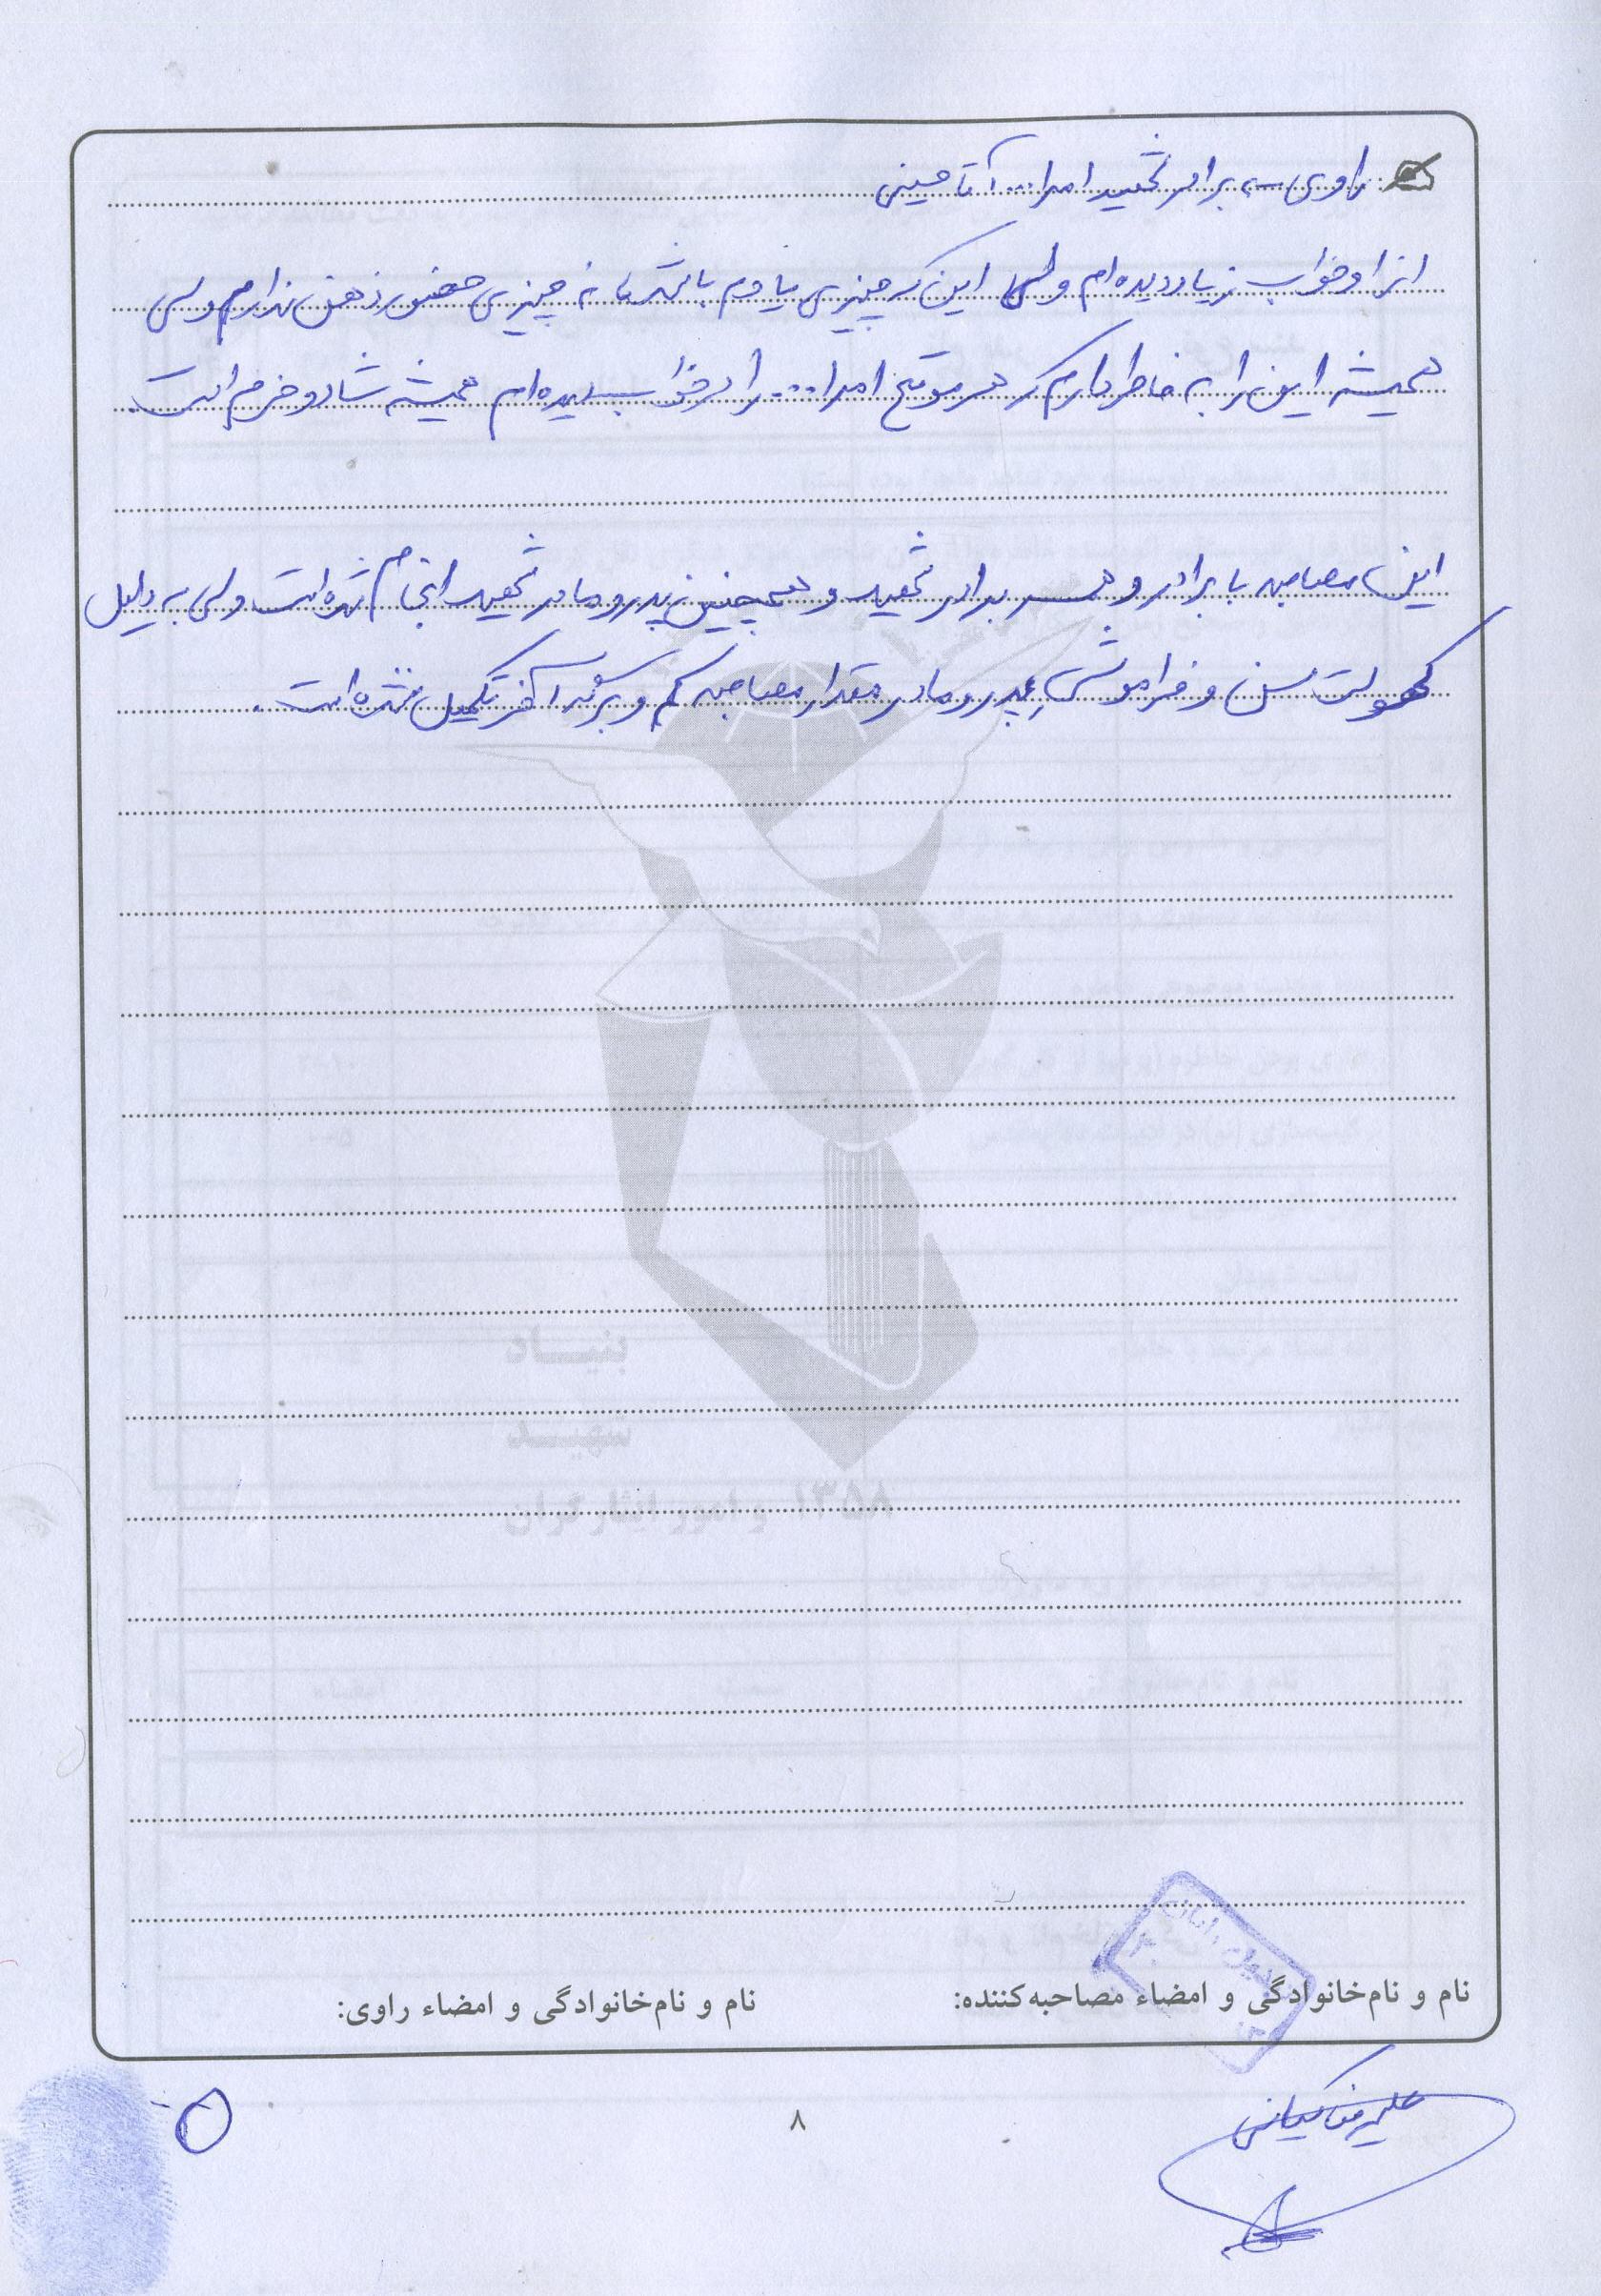 راوی برادر شهید امرا... آقا حسینی
از او خواب زیاد دیده‌ام ولی این که چیزی یادم باشد نه چیزی حضور ذهن ندارم ولی
همیشه این را به خاطر دارم که هر موقع امرا... را در خواب دیده‌ام همیشه شاد و خرم است.
این مصاحبه با برادر و همسر برادر شهید و همچنین پدر و مادر شهید انجام شده است ولی به دلیل
کهولت سن و فراموشی پدر و مادر مقدار مصاحبه کم و برگه آخر تکمیل نشده است.
بنیاد
شهید
۱۳۵۸ و امور ایثارگران
نام و نام‌خانوادگی و امضاء مصاحبه‌کننده:
نام و نام‌خانوادگی و امضاء راوی:
علیرضا
۸